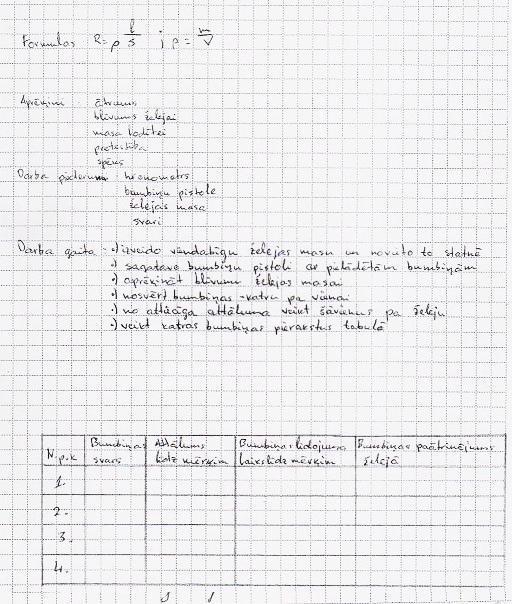 Formulas R = ρ l/s ; ρ = m/V
Aprēķini: ātrums
blīvums želejai
masa lodītei
pretestība
spēks
Darba piederumi: hronometrs
bumbiņu pistole
želejas masa
svari
Darba gaita ·) izveido viendabīgu želejas masu un novieto to statnē
·) sagatavo bumbiņu pistoli ar pielādētām bumbiņām
·) aprēķināt blīvumu želejas masai
·) nosvērt bumbiņas - katru pa vienai
·) no attiecīga attāluma veikt šāvienus pa želeju
·) veikt katras bumbiņas pierakstus tabulā
N.p.k Bumbiņas svars Attālums līdz mērķim Bumbiņas lidojuma laiks līdz mērķim Bumbiņas paātrinājums želejā
1.
2.
3.
4.